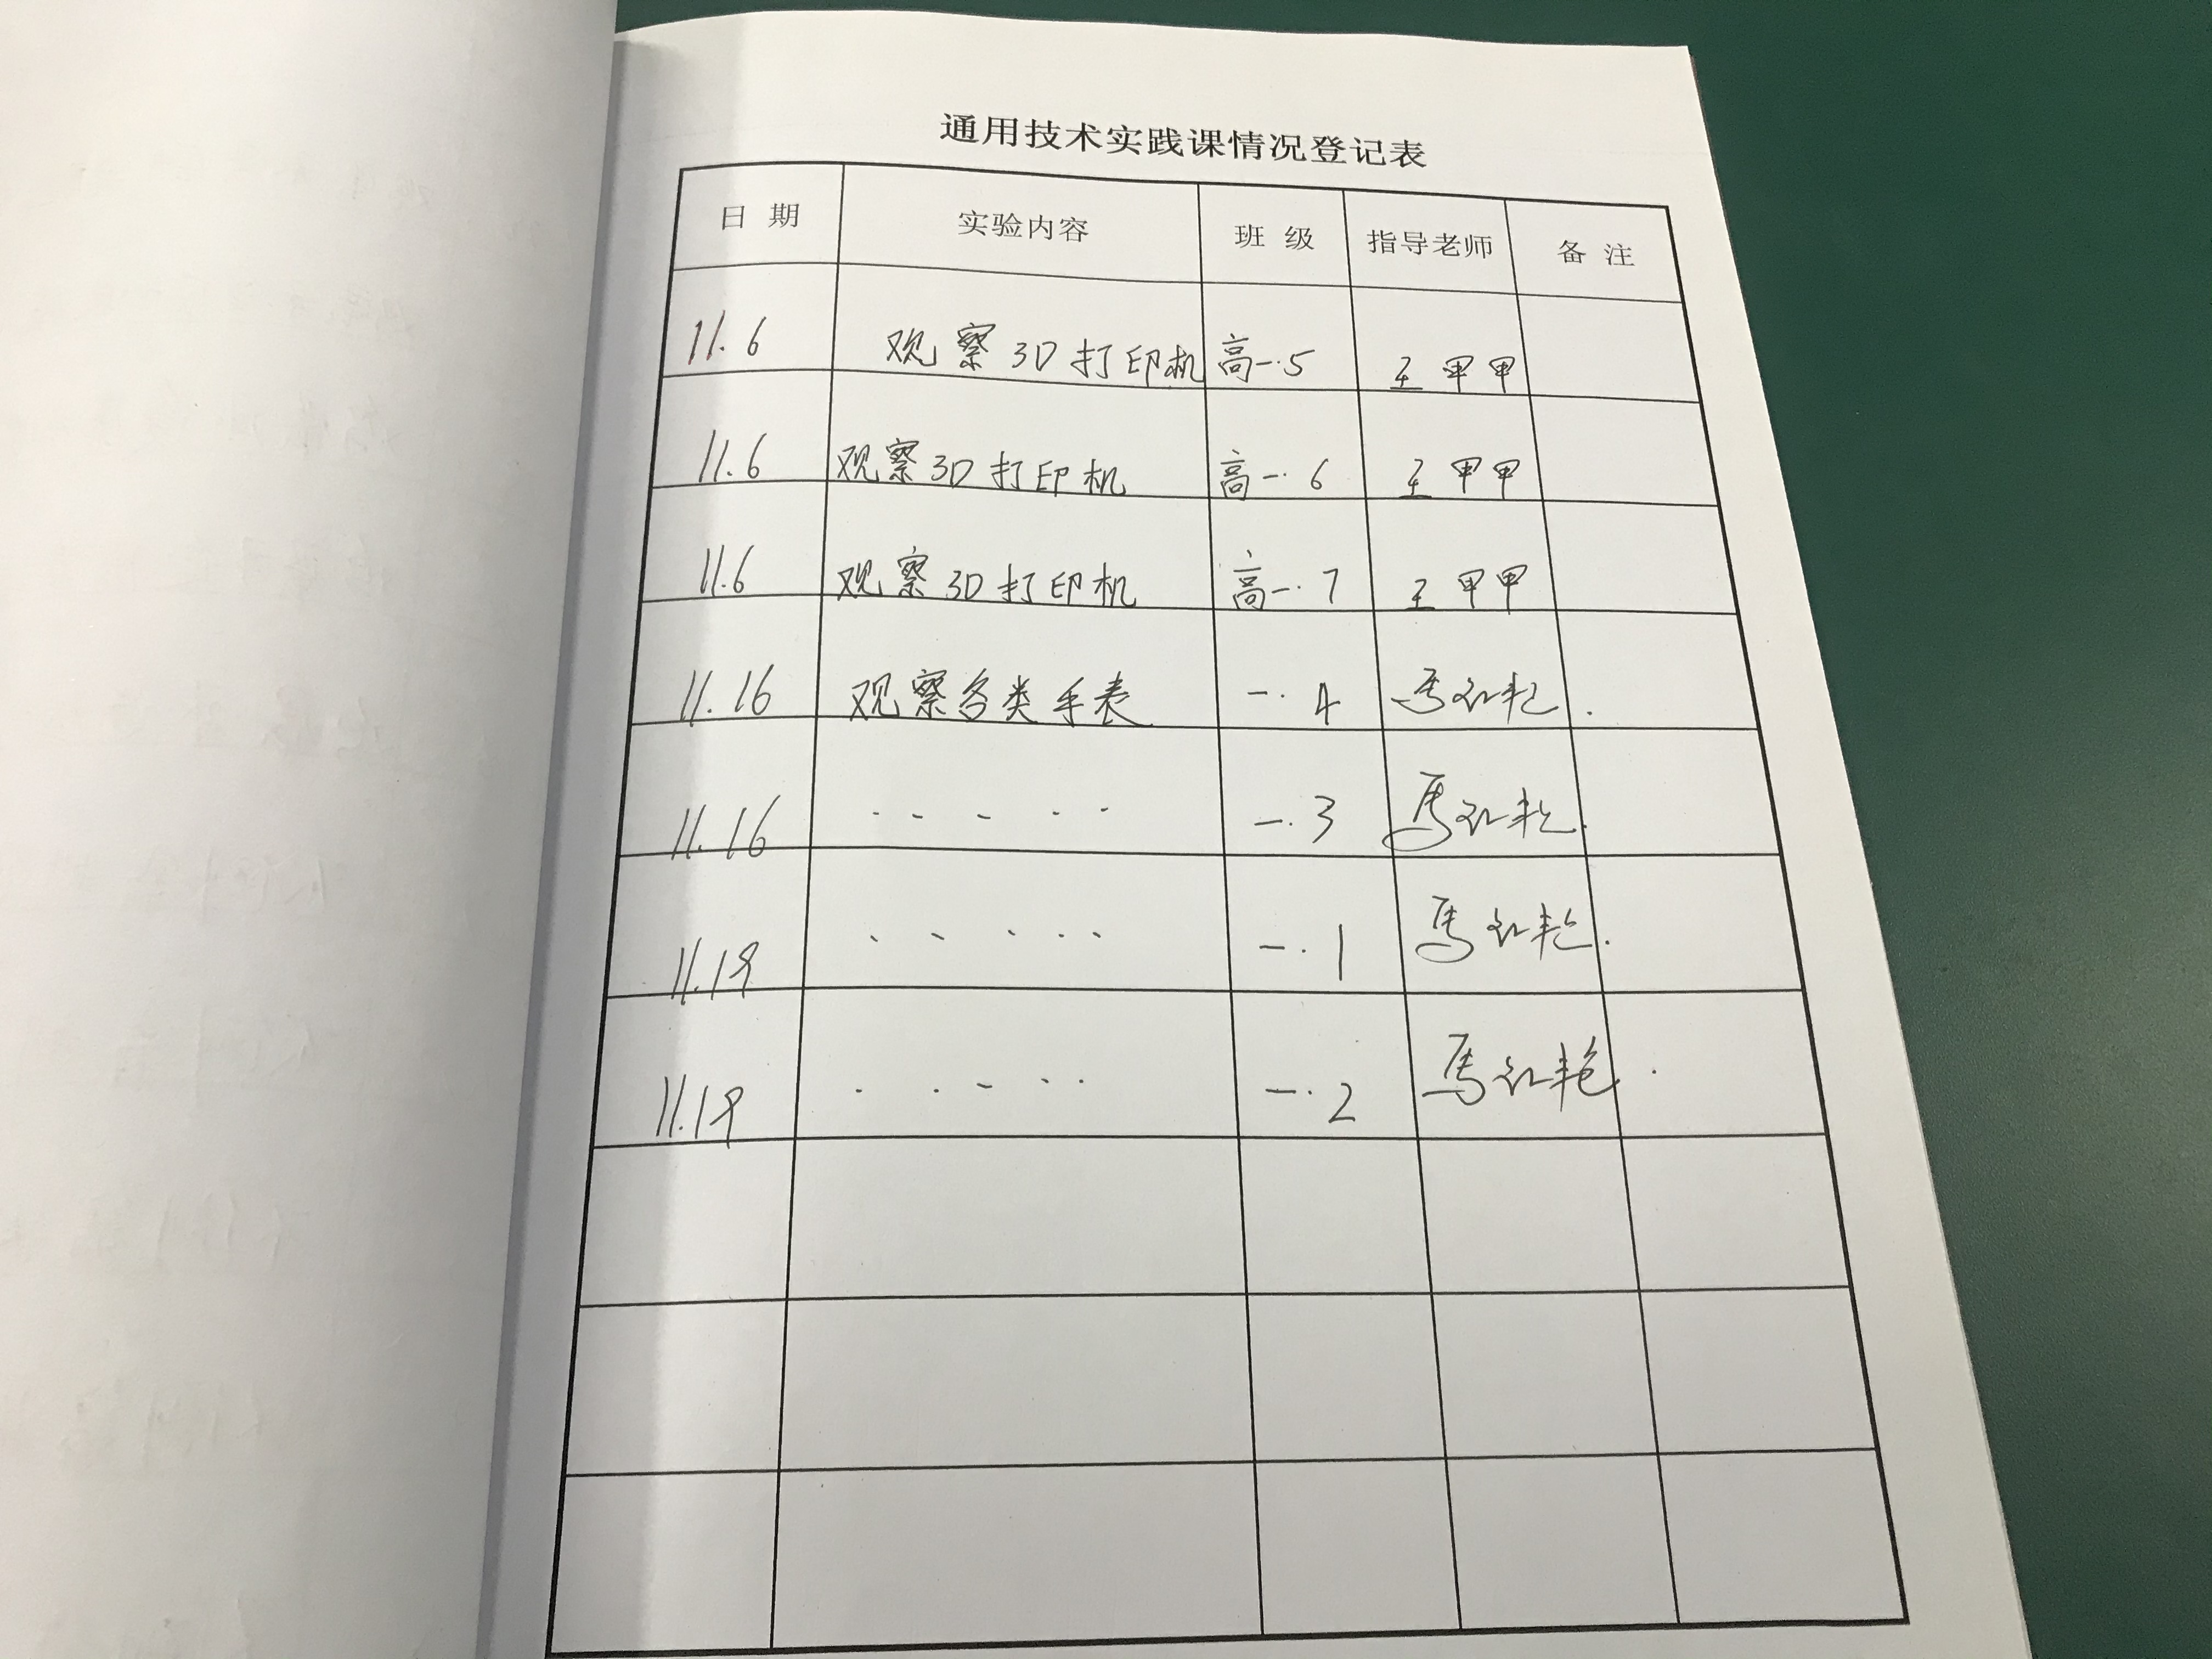 通用技术实践课情况登记表
日 期 实验内容 班 级 指导老师 备 注
11.6 观察3D打印机 高一.5 王甲甲
11.6 观察3D打印机 高一.6 王甲甲
11.6 观察3D打印机 高一.7 王甲甲
11.16 观察各类手表 一.4 马红艳.
11.16 一.3 马红艳.
11.19 一.1 马红艳.
11.19 一.2 马红艳.